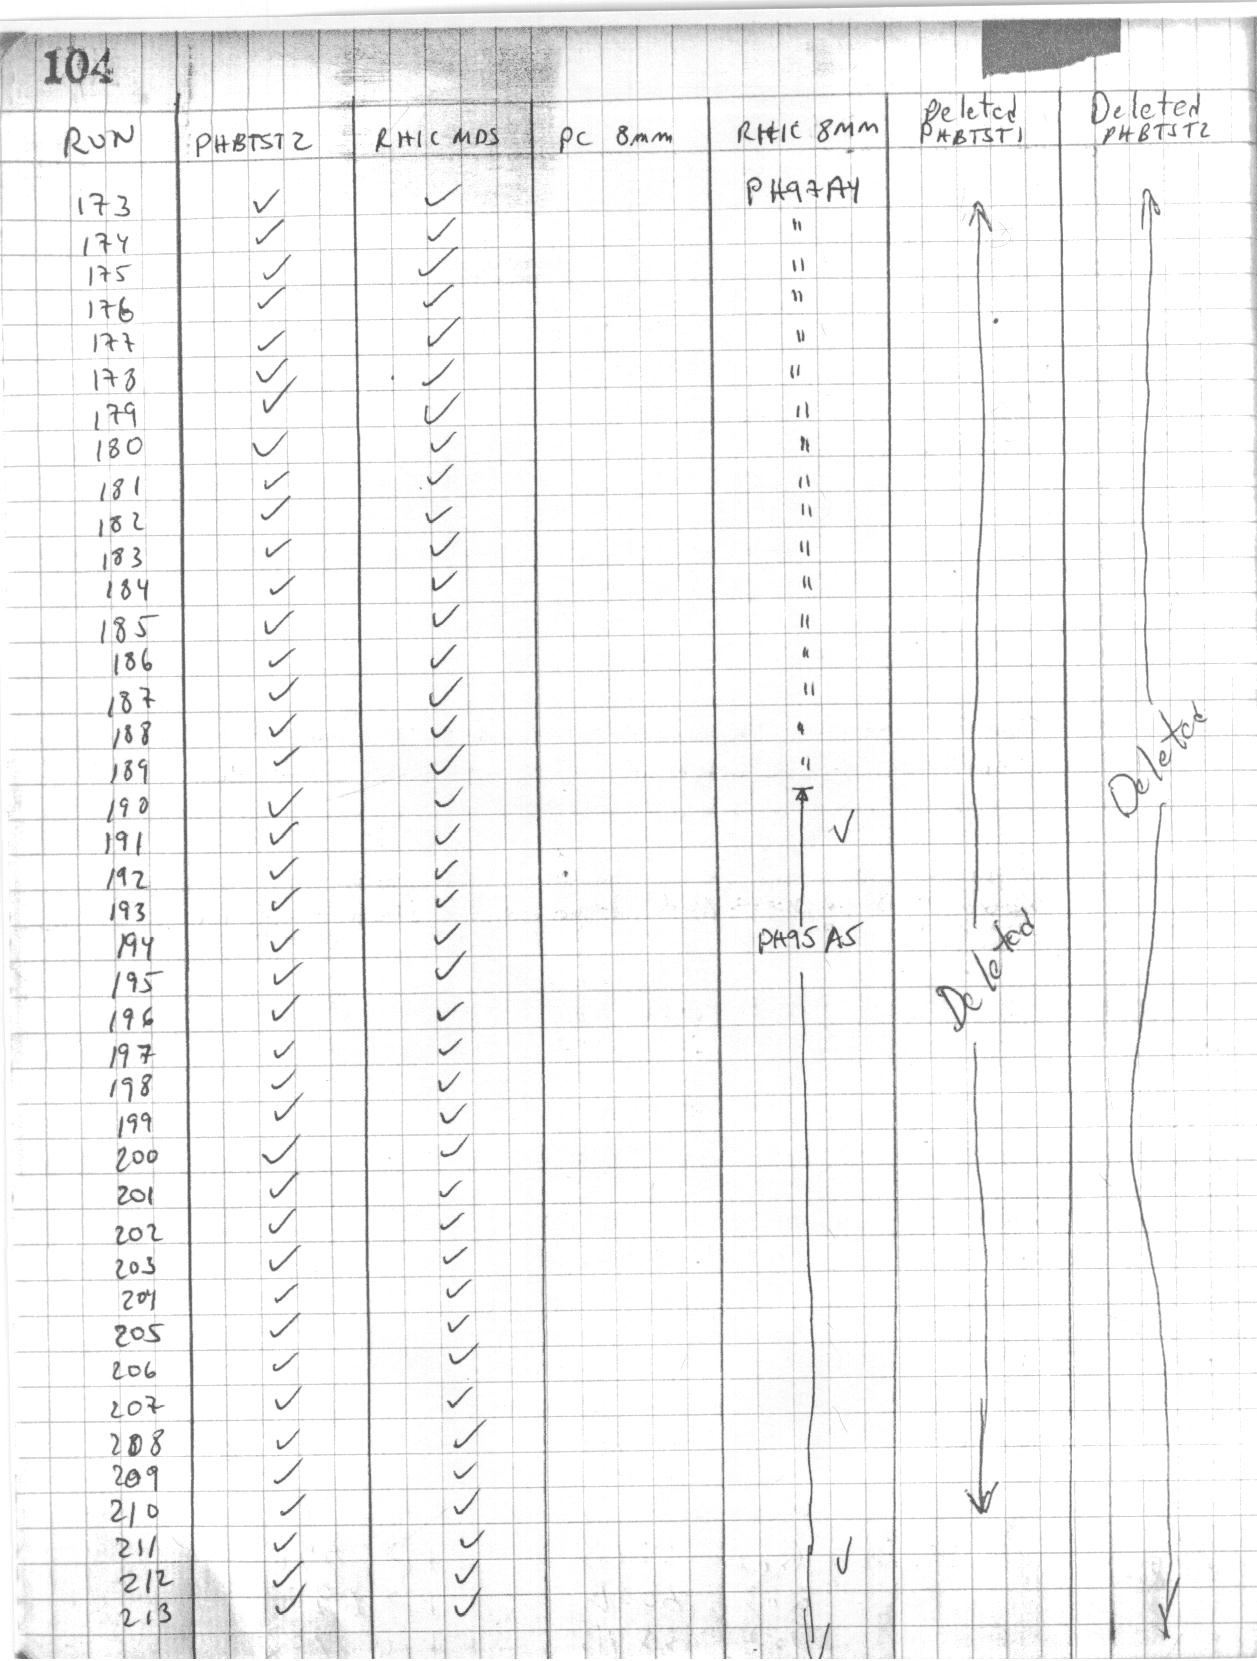 104
RUN PHBTST2 RHIC MDS PC 8mm RHIC 8mm Deleted PHBTST1 Deleted PHBTST2
173 ✓ ✓ PH97A4
174 ✓ ✓ "
175 ✓ ✓ "
176 ✓ ✓ "
177 ✓ ✓ "
178 ✓ ✓ "
179 ✓ ✓ "
180 ✓ ✓ "
181 ✓ ✓ "
182 ✓ ✓ "
183 ✓ ✓ "
184 ✓ ✓ "
185 ✓ ✓ "
186 ✓ ✓ "
187 ✓ ✓ "
188 ✓ ✓ "
189 ✓ ✓ " Deleted
190 ✓ ✓
191 ✓ ✓ ✓
192 ✓ ✓
193 ✓ ✓
194 ✓ ✓ PH95A5
195 ✓ ✓ Deleted
196 ✓ ✓
197 ✓ ✓
198 ✓ ✓
199 ✓ ✓
200 ✓ ✓
201 ✓ ✓
202 ✓ ✓
203 ✓ ✓
204 ✓ ✓
205 ✓ ✓
206 ✓ ✓
207 ✓ ✓
208 ✓ ✓
209 ✓ ✓
210 ✓ ✓
211 ✓ ✓ ✓
212 ✓ ✓
213 ✓ ✓